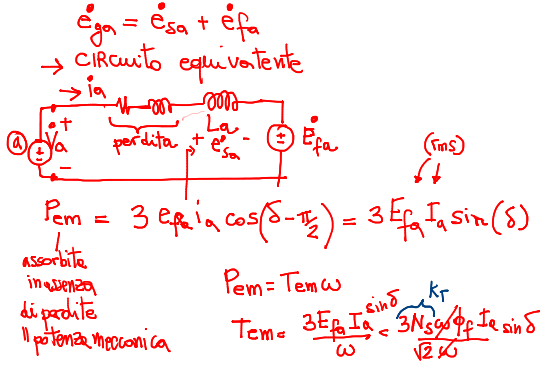 ėga = ėsa + ėfa
→ CIRCUITO equivalente
→ ia
a + Va − perdita La + ėsa − Ėfa
(rms)
Pem = 3 efa ia cos(δ-π/2) = 3 Efa Ia sin(δ)
assorbita
in assenza
di perdite
" potenza meccanica
Pem = Tem ω
kT
Tem = 3 Efa Ia sinδ / ω = 3 Ns ω ϕf Ia sinδ / √2 ω